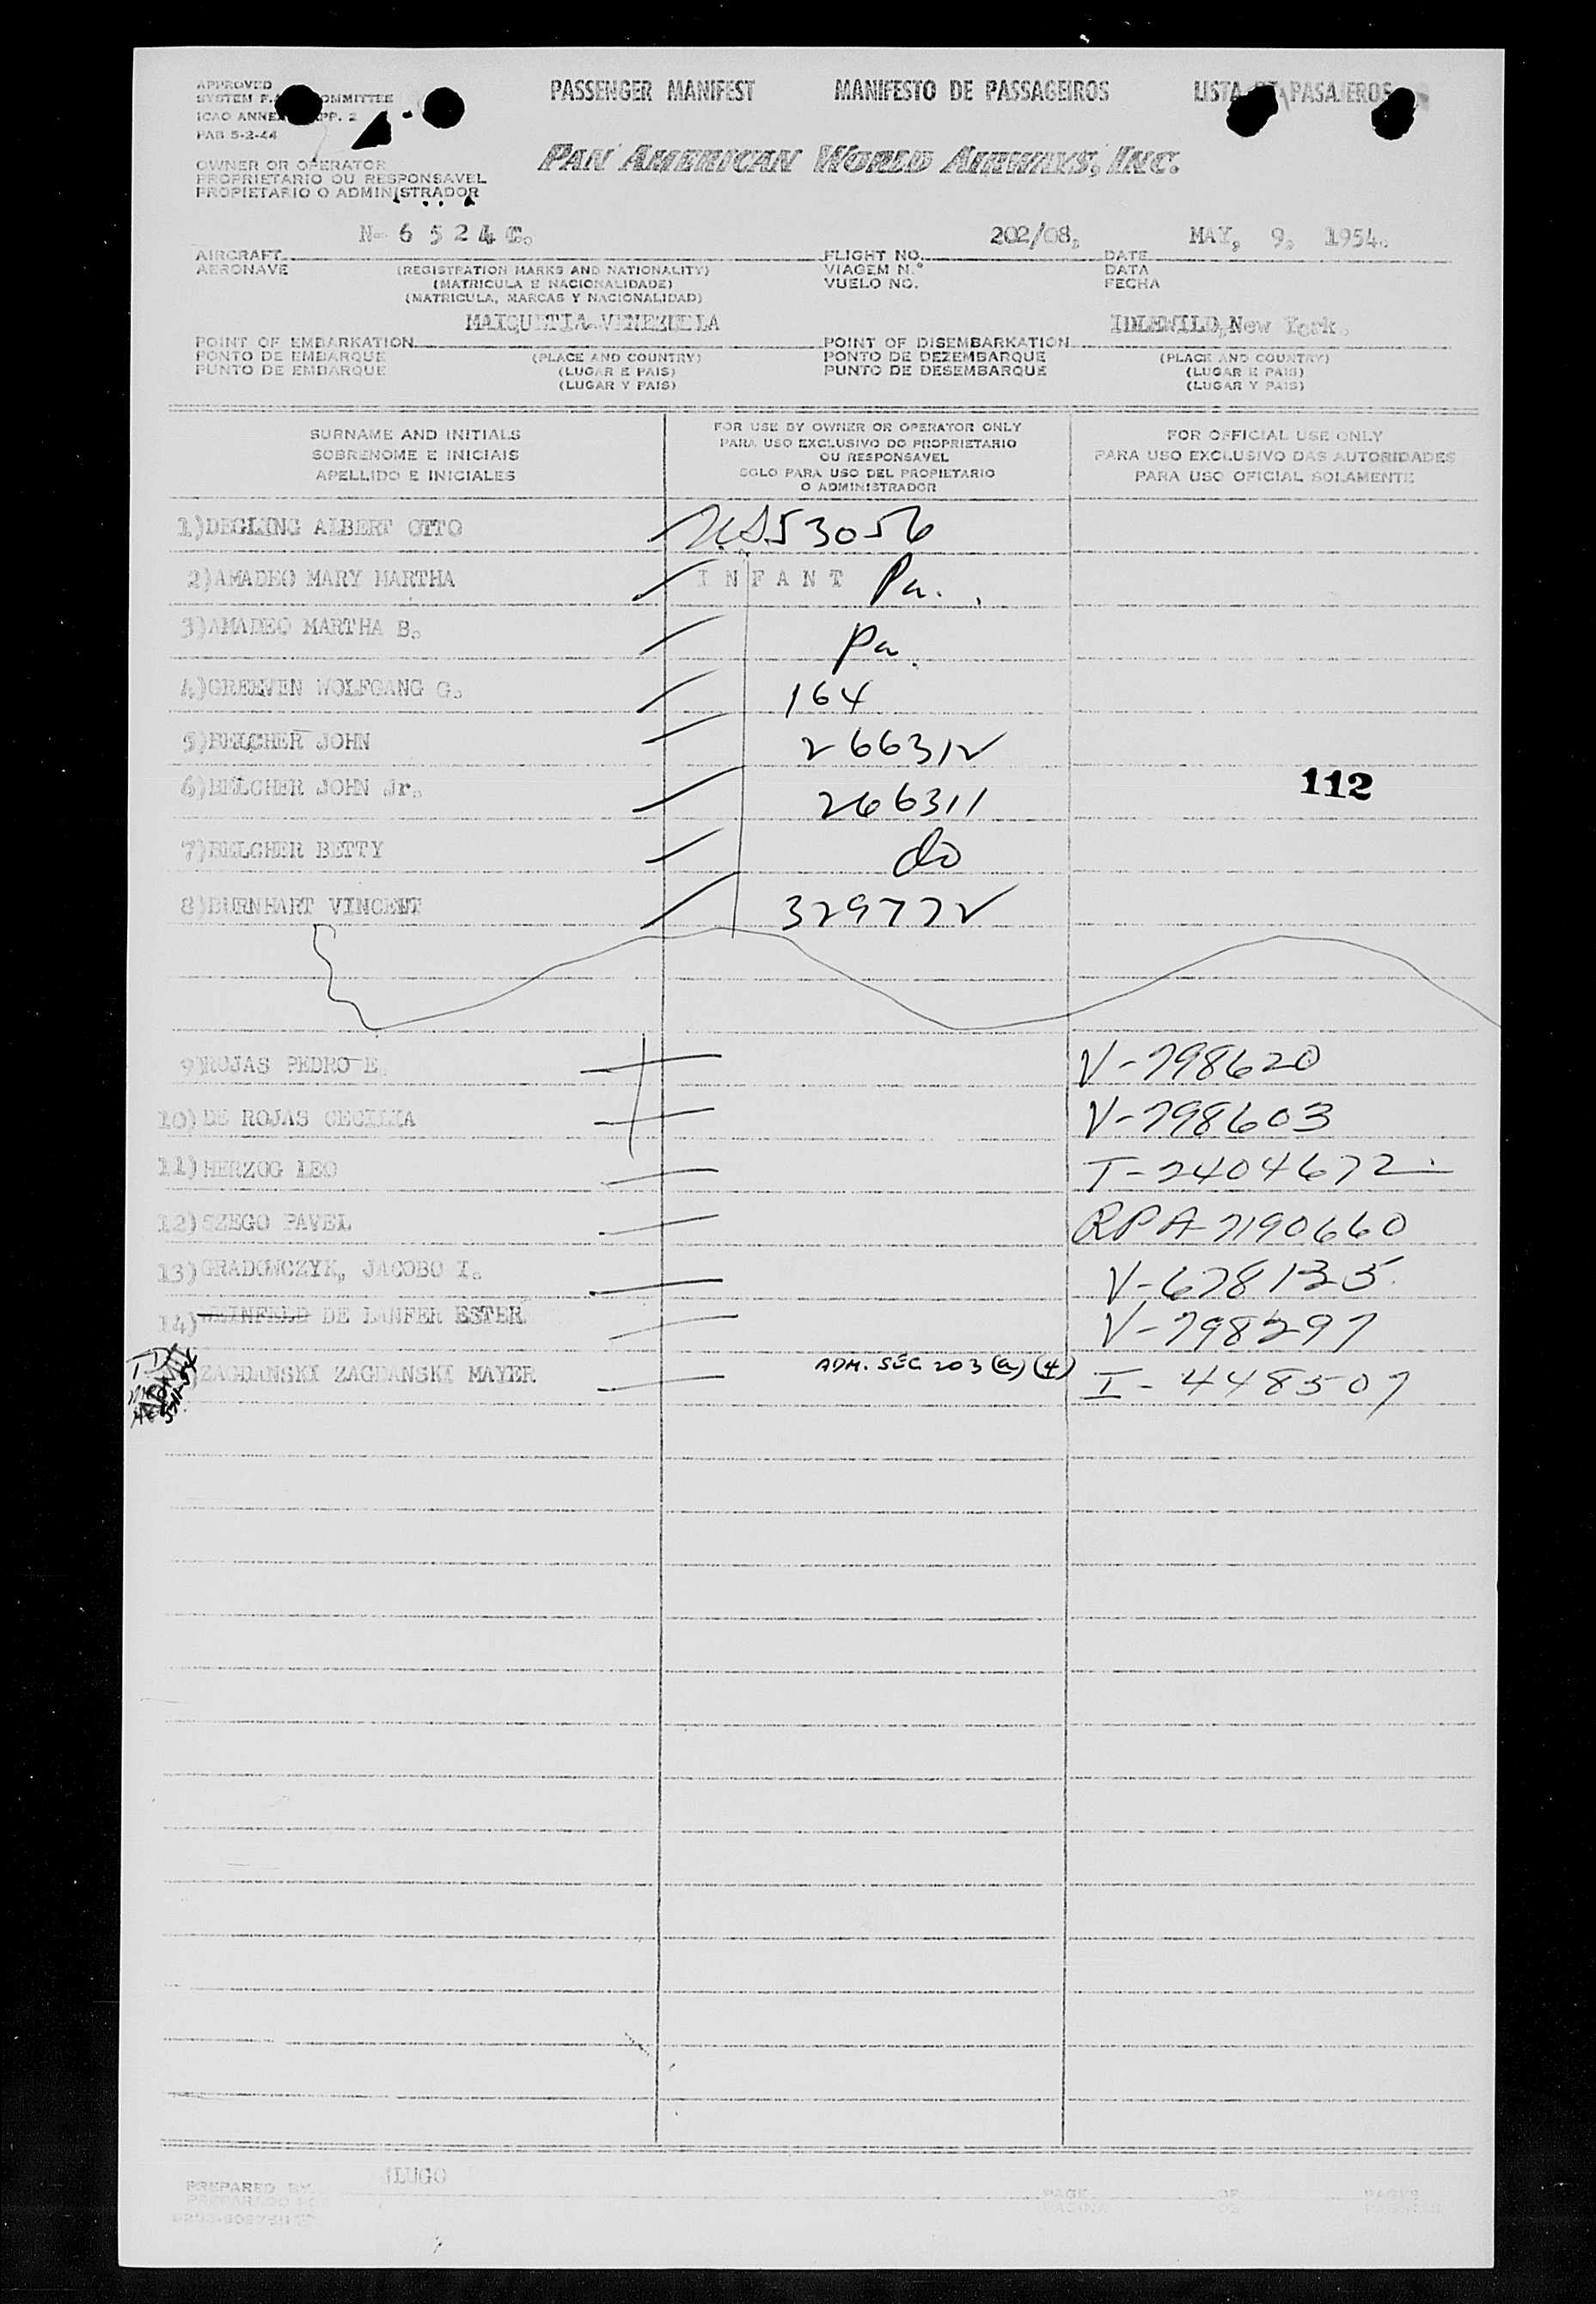 APPROVED
SYSTEM F. COMMITTEE
ICAO ANNEX APP. 2
PAB 5-2-44
PASSENGER MANIFEST MANIFESTO DE PASSAGEIROS LISTA DE PASAJEROS
OWNER OR OPERATOR
PROPRIETARIO OU RESPONSAVEL
PROPIETARIO O ADMINISTRADOR
PAN AMERICAN WORLD AIRWAYS, INC.
N- 6 5 2 4 C. 202/08, MAY, 9, 1954.
AIRCRAFT FLIGHT NO. DATE
AERONAVE (REGISTRATION MARKS AND NATIONALITY) VIAGEM N.º DATA
(MATRICULA E NACIONALIDADE) VUELO NO. FECHA
(MATRICULA, MARCAS Y NACIONALIDAD)
MAIQUETIA-VENEZUELA IDLEWILD, New York.
POINT OF EMBARKATION POINT OF DISEMBARKATION
PONTO DE EMBARQUE (PLACE AND COUNTRY) PONTO DE DEZEMBARQUE (PLACE AND COUNTRY)
PUNTO DE EMBARQUE (LUGAR E PAIS) PUNTO DE DESEMBARQUE (LUGAR E PAIS)
(LUGAR Y PAIS) (LUGAR Y PAIS)
SURNAME AND INITIALS
SOBRENOME E INICIAIS
APELLIDO E INICIALES
FOR USE BY OWNER OR OPERATOR ONLY
PARA USO EXCLUSIVO DO PROPRIETARIO
OU RESPONSAVEL
SOLO PARA USO DEL PROPIETARIO
O ADMINISTRADOR
FOR OFFICIAL USE ONLY
PARA USO EXCLUSIVO DAS AUTORIDADES
PARA USO OFICIAL SOLAMENTE
1) DEGLING ALBERT OTTO U.S.53056
2) AMADEO MARY MARTHA I N F A N T Pa.
3) AMADEO MARTHA B. Pa.
4) GREEVEN WOLFGANG G. 164
5) BELCHER JOHN 266312
6) BELCHER JOHN Jr. 266311
112
7) BELCHER BETTY do
8) BURNHART VINCENT 329772
9) ROJAS PEDRO E V-798620
10) DE ROJAS CECILIA V-798603
11) HERZOG LEO T-2404672
12) SZEGO PAVEL RPA-7190660
13) GRADOWCZYK, JACOBO I. V-678135
14) WEINFELD DE LANFER ESTER V-798297
ZAGDANSKI ZAGDANSKI MAYER ADM. SEC 203 (a) (4) I-448507
PREPARED BY LUGO
PAGE OF PAGES